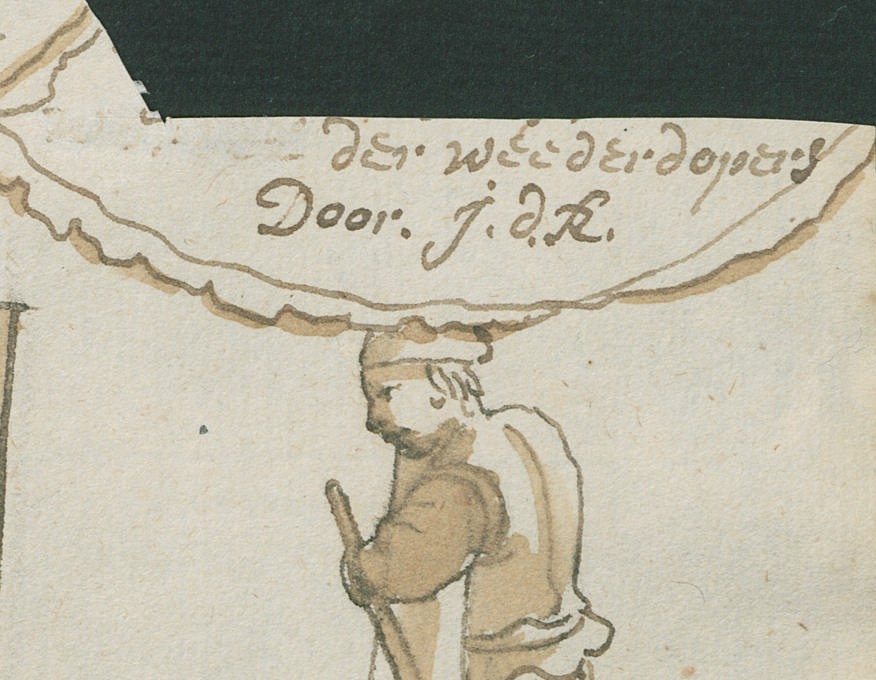 der weederdopers
Door. J. d. K.